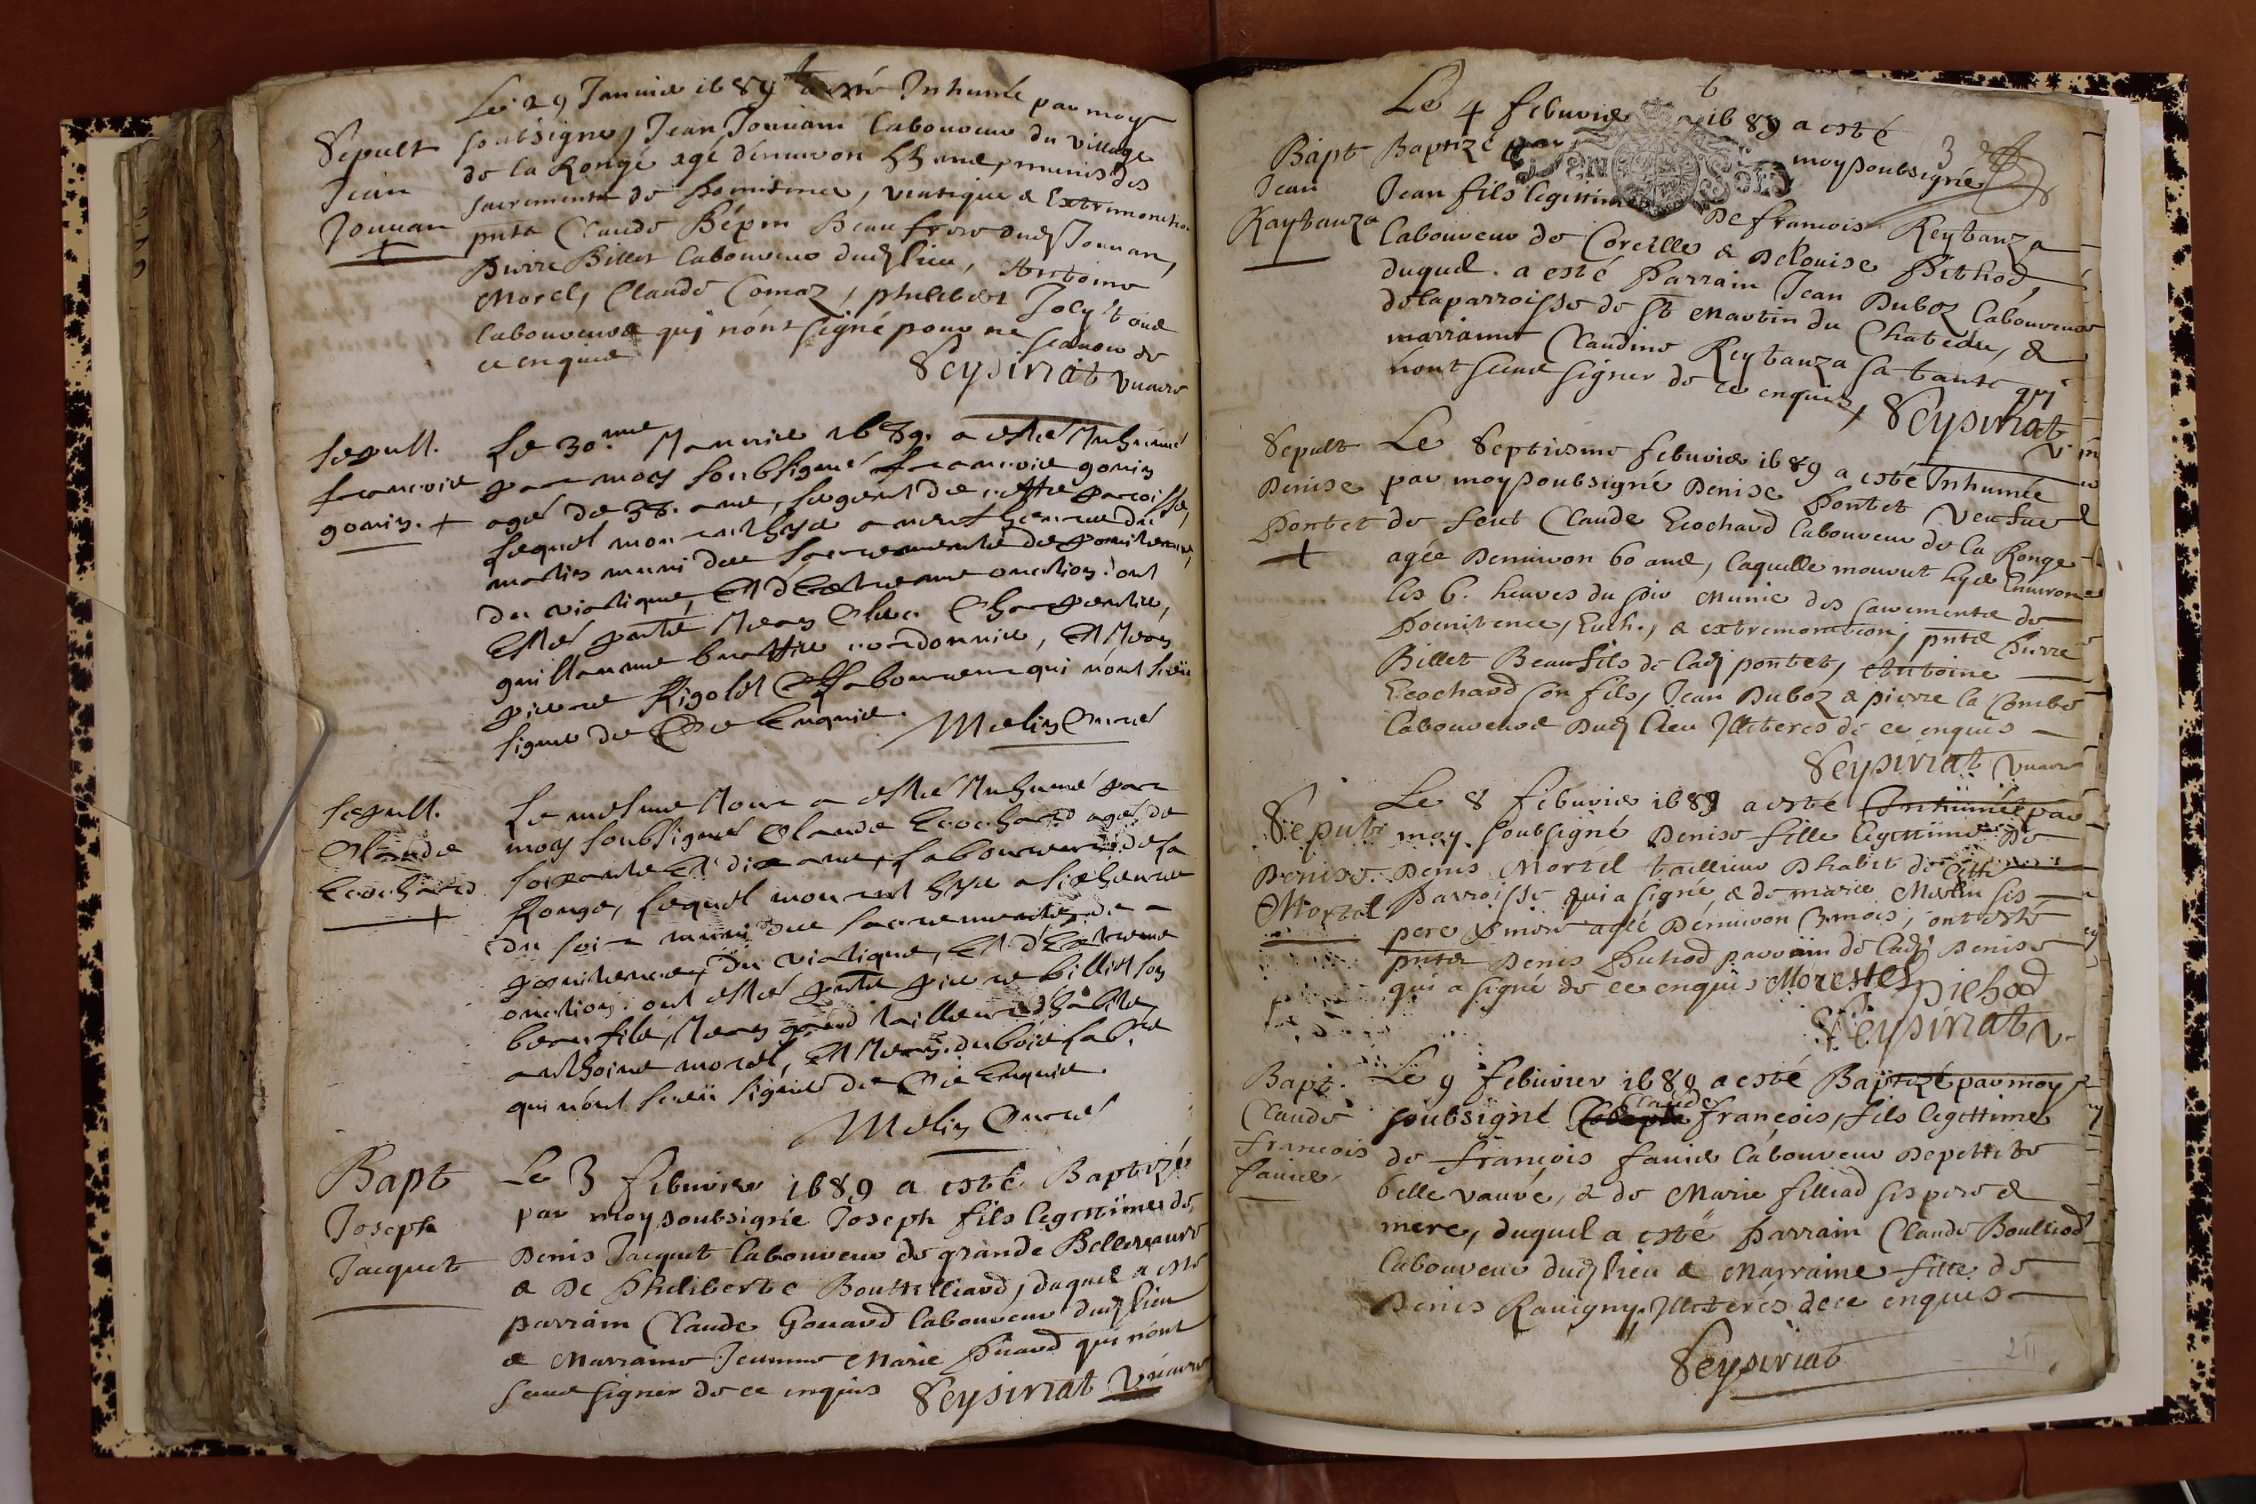 Le 29 Januier 1689 a esté Inhumé par moy
Sepult soubsigné, Jean Jouuan laboureur du village
Jean de la Ronge agé d'enuiron 55 ans, munis des
Jouuan sacrements de poenitence, viatique & Extremonction
pnts Claude Pépin Beaufrere dudj Jouuan,
Pierre Billet laboureur dudj lieu, Antoine
Morel, Claude Comaz, philibert Joly tous
laboureurs qui n'ont signé pour ne scauoir de
ce enquis
Seysiriat vicaire
sepult. Le 30.me Januier 1689. a esté Inhumé
francois par moy soubsigné francois gonin
gonin. agé de 38. ans, sergent de cette paroisse,
lequel mourut hyer a neuf heures du
matin muni des sacrements de penitence,
du viatique, Et d'Extreme onction. ont
Esté pnts Jean Charpentier,
guillaume cordonnier, Et Jean
pierre Rigolet laboureur qui n'ont sceu
signer de Ce Enquis.
Melin Curé
sepult. Le mesme Jour a esté Inhumé par
Claude moy soubsigné Claude Ecochard agé de
Ecochard soixante Et dix ans, laboureur de la
Ronge, lequel mourut hyer a six heures
du soir muni des sacrements de
penitence, du viatique, Et d'Extreme
onction. ont esté pnts pierre billiet son
beau fils, Jean tailleur d'habits,
anthoine morel, Et Jean dubois lab.r
qui n'ont sceu signer de Ce Enquis.
Melin Curé
Bapt Le 3 febuvier 1689 a esté Baptizé
Joseph par moy soubsigné Joseph fils legittime de
Jacquet Denis Jacquet laboureur de grande Belleuaure
& De Philiberte Bouttilliard, duquel a esté
parrain Claude Gouard laboureur dudj lieu
& Marraine Jeanne Marie Picard qui n'ont
sceus signer de ce enquis Seysiriat vicaire
Le 4 febuvier 1689 a esté
3
Bapt Baptizé par moy soubsigné
Jean Jean fils legittime De francois Reybanza
Raybanza laboureur de Coreilles & De Louise Pithod,
duquel a esté Parrain Jean Duboz laboureur
de la parroisse de St Martin du Chateau, &
marraine Claudine Reybanza sa tante qui
n'ont sceus signer de ce enquis, Seysiriat
V.
Sepult Le Septiesme febuvier 1689 a esté Inhumée
Denise par moy soubsigné Denise Pontet veufue
Pontet de feut Claude Ecochard laboureur de la Ronge
agée Denuiron 60 ans, laquelle mourut hyer Enuiron
les 6. heures du soir Munie des sacrements de
Poenitence, Euch., & extremonction, pnts Pierre
Billet Beaufils de ladj pontet, Antoine
Ecochard son fils, Jean Duboz & pierre la Combe
laboureurs Dudj lieu Illiteres de ce enquis
Seysiriat vicaire
Le 8 febuvier 1689 a esté Inhumée par
Sepult moy soubsigné Denise fille legittime De
Denise Denis Mortel taillieur Dhabit de cette
Mortel Parroisse qui a signé, & de marie Merlin ses
pere & mere agée Denuiron 3 mois, ont esté
pnts Denis Pithod parrain de ladj Denise
qui a signé de ce enquis Morestel pichod
Seysiriat v.
Bapt. Le 9 febuvier 1689 a esté Baptizé par moy
Claude
Claude soubsigné francois, fils legittime
francois de francois fauier laboureur De pettite
fauier belle vauvre, & de Marie filliad ses pere &
mere, duquel a esté Parrain Claude Boulliod
laboureur dudj lieu & Marraine fille de
Denis Rauigny, Illiterés de ce enquis
Seysiriat